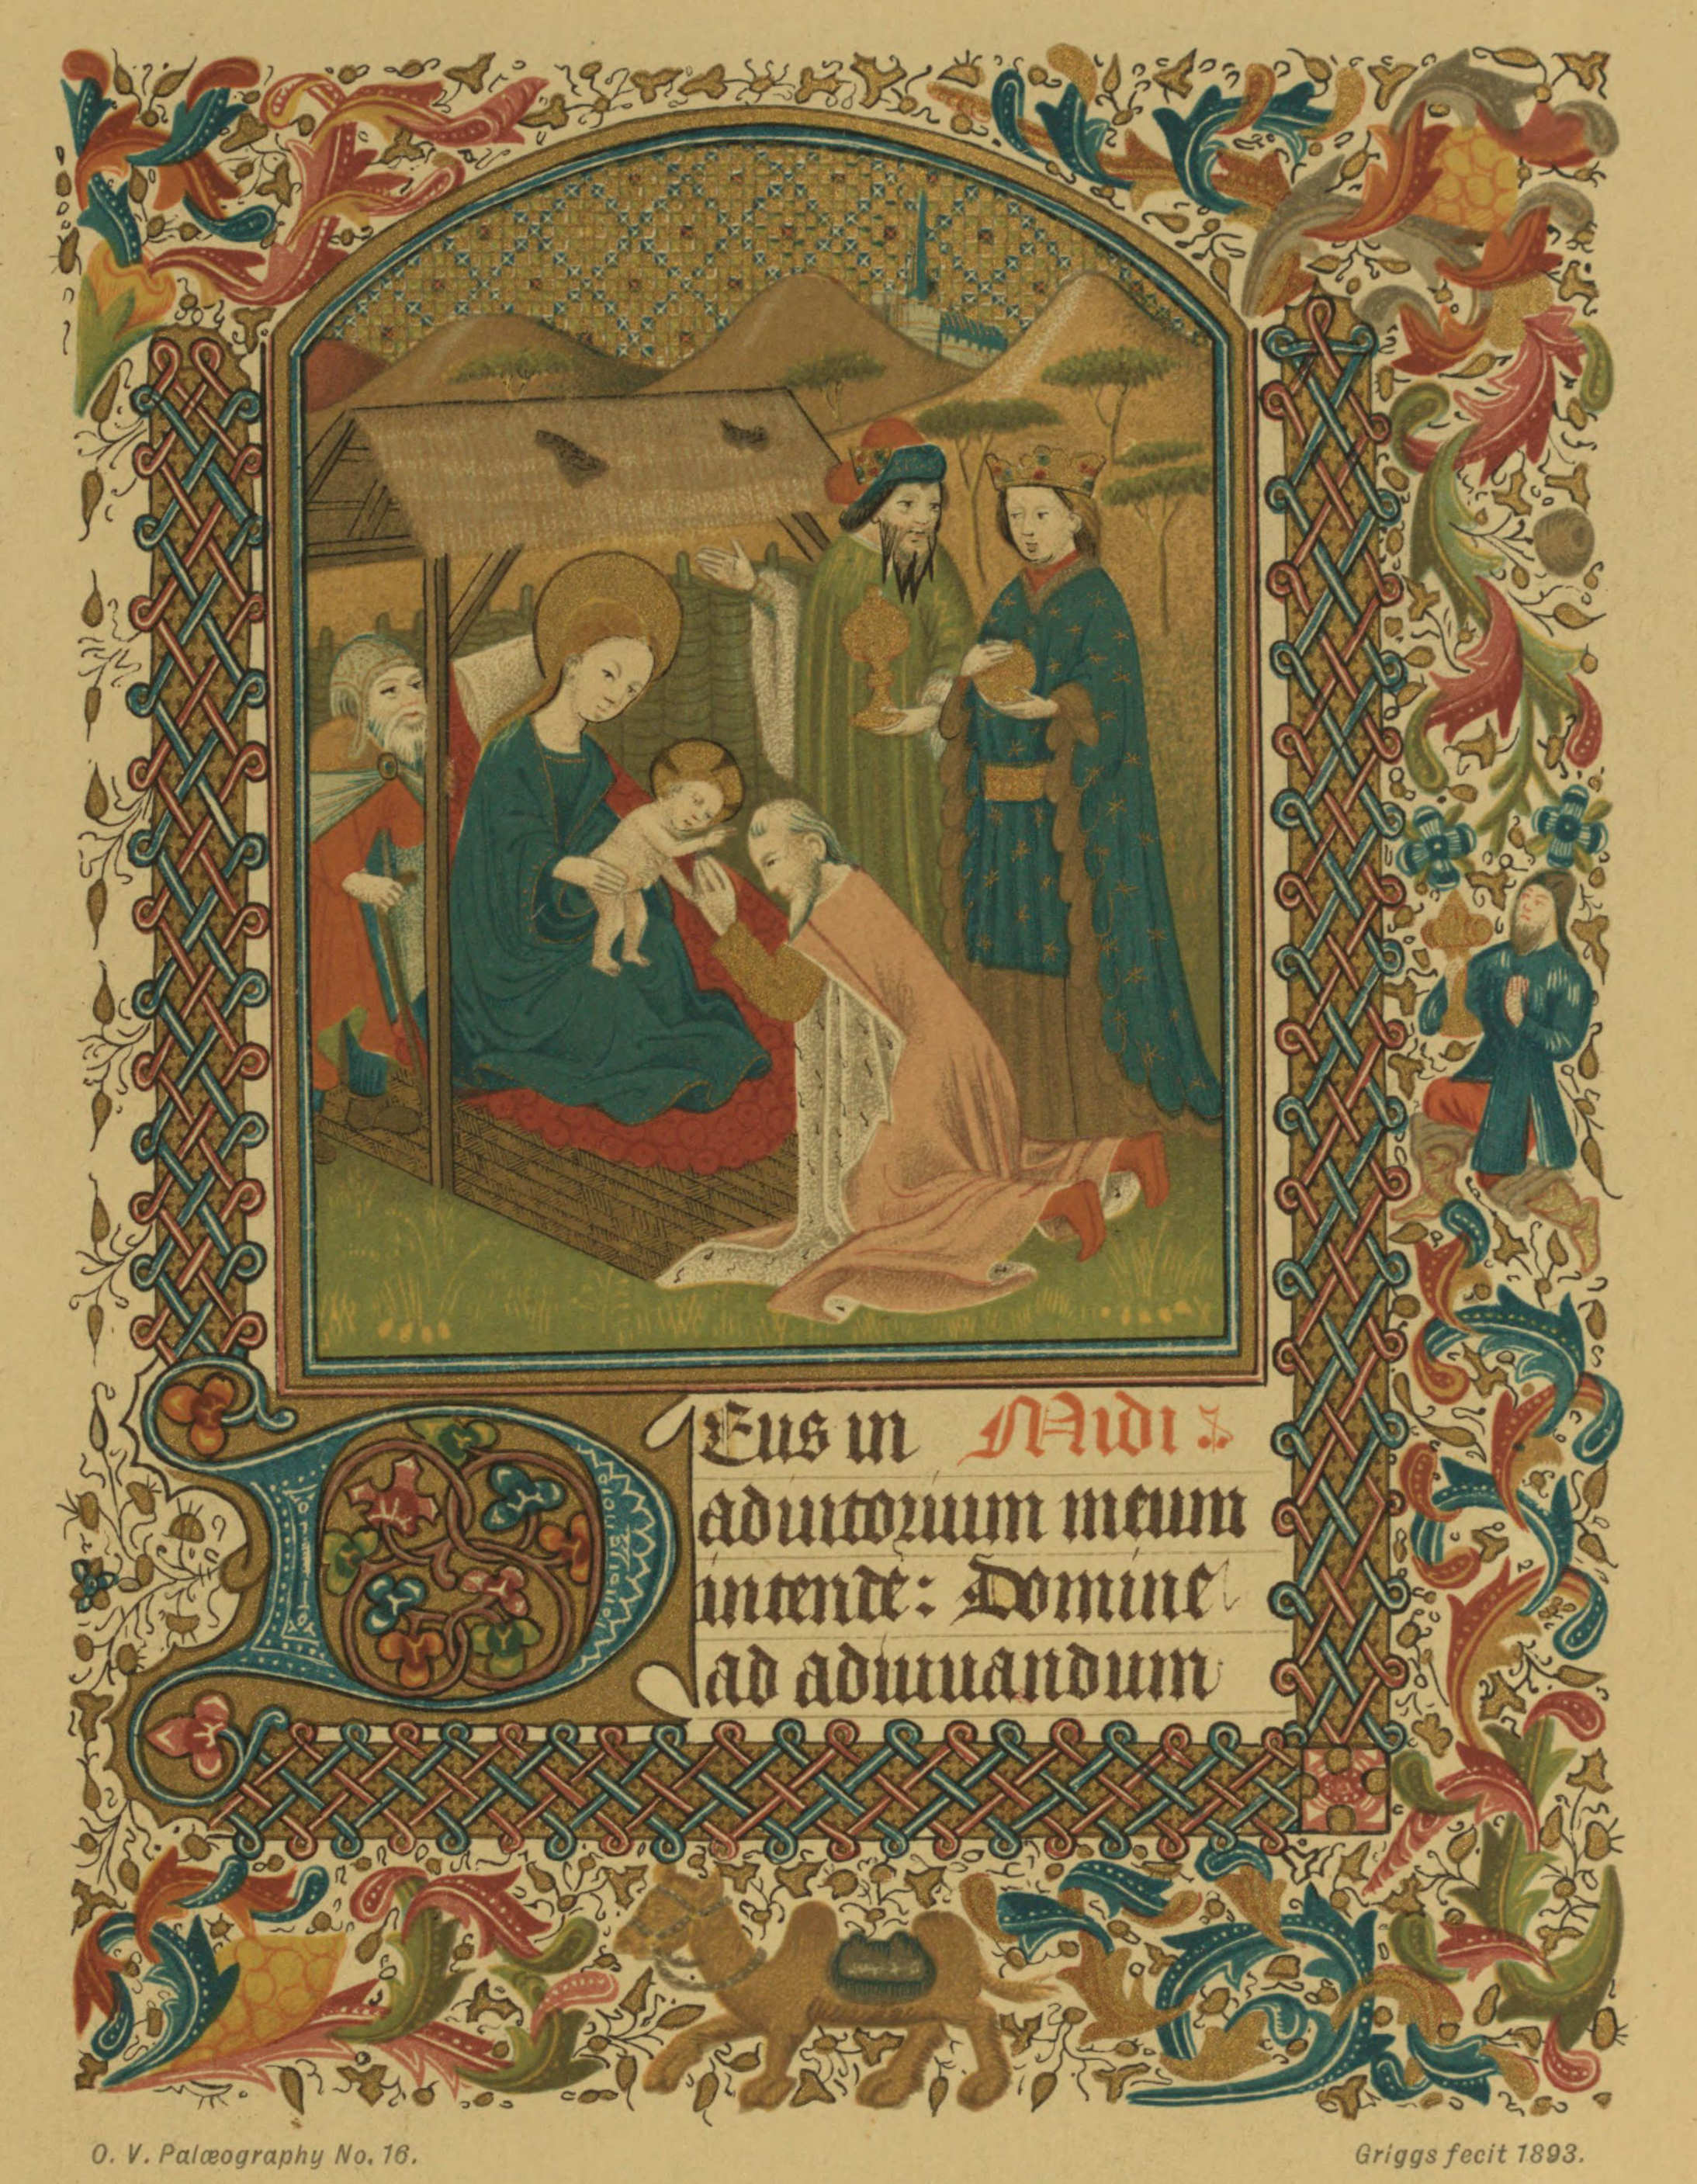 DEus in Midi:
adiutorium meum
intende: Domine
ad adiuuandum
O. V. Palæography No. 16.
Griggs fecit 1893.